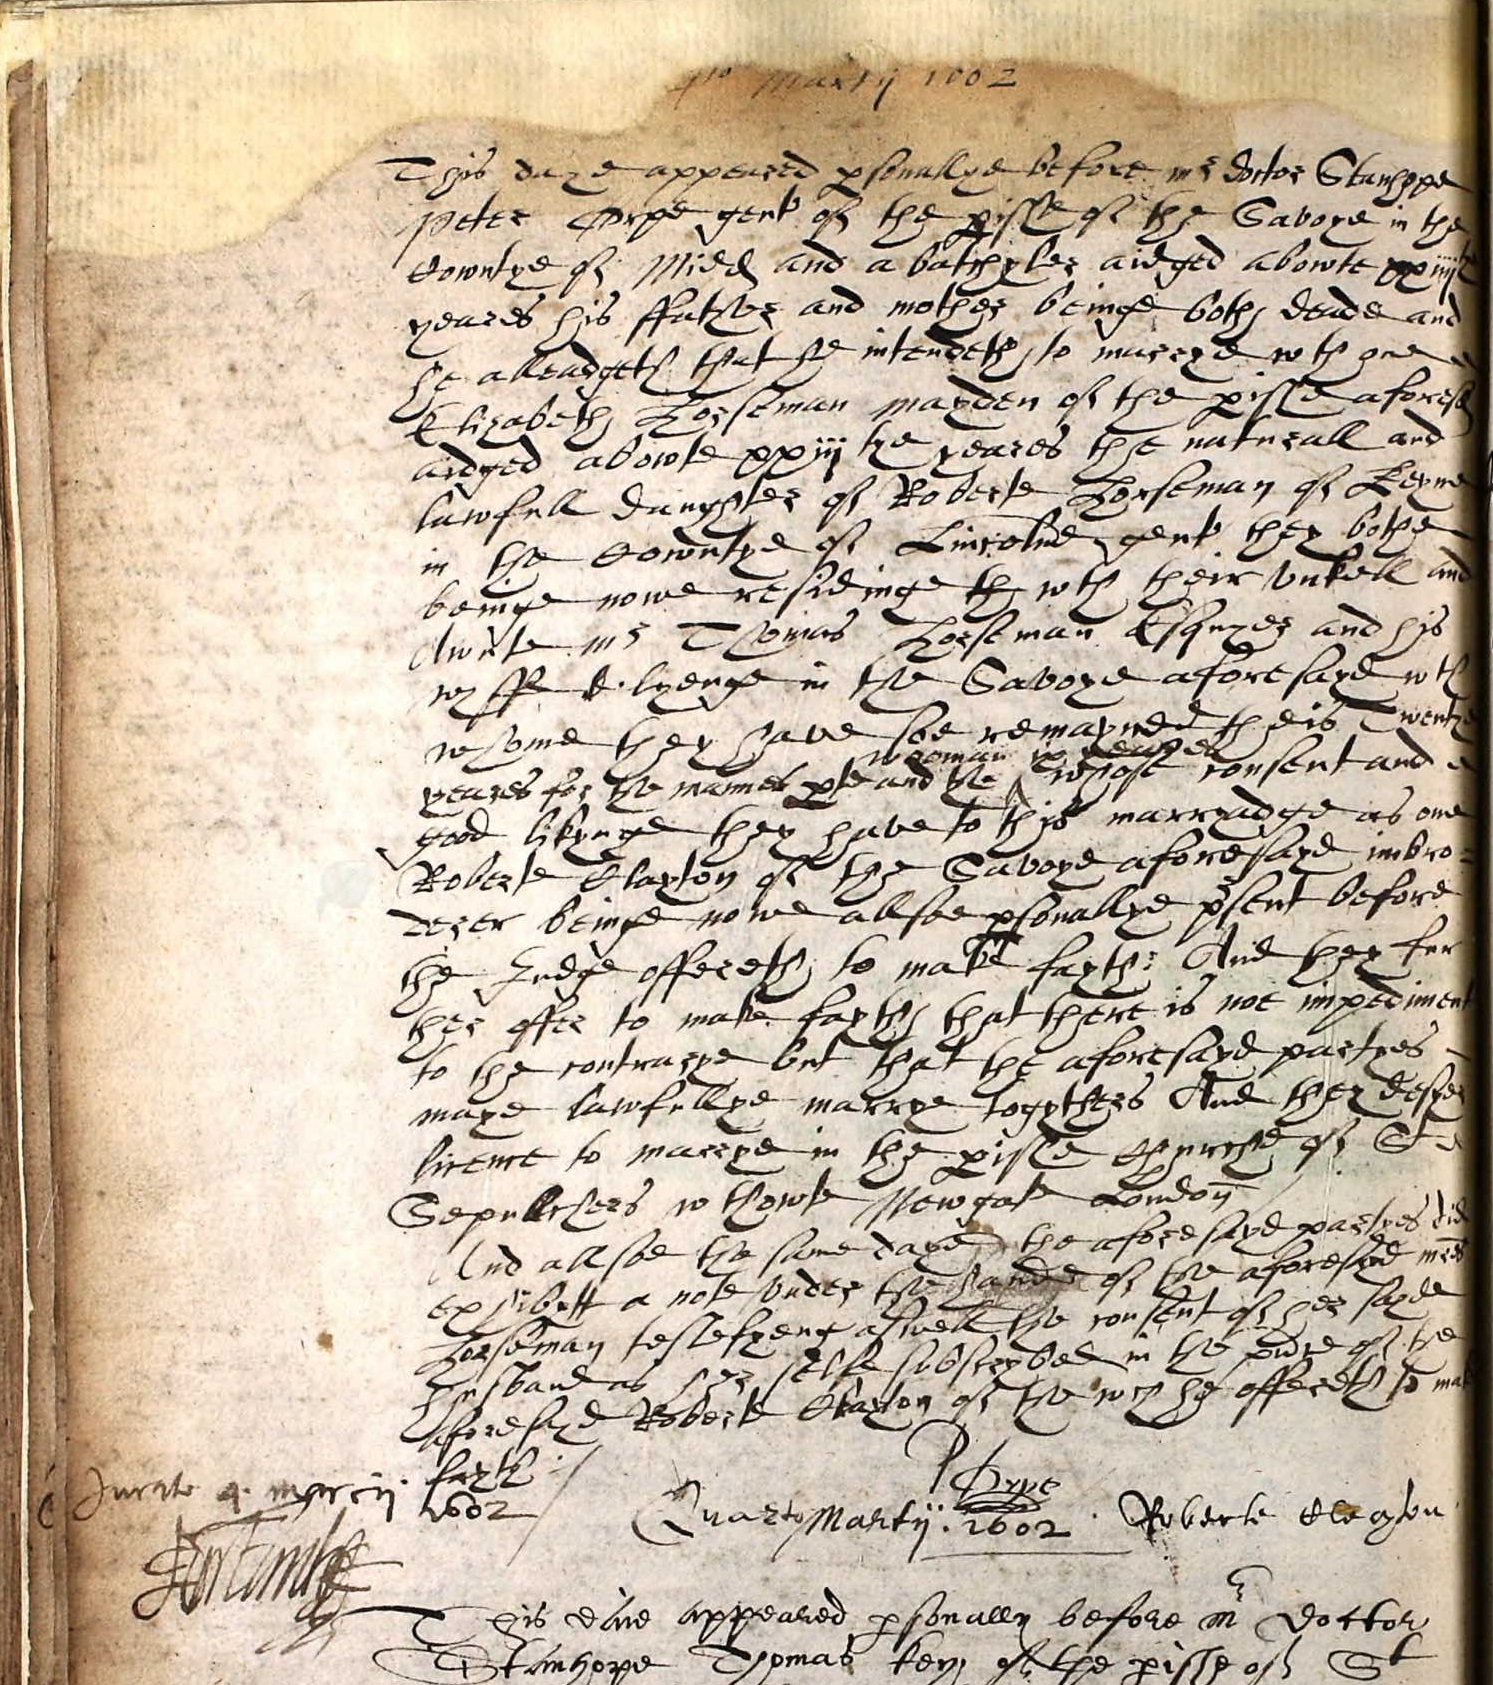 4to Martij 1602
This daye appeared psonallye before mr doctor Stanhope
Peter gent of the pisshe of the Savoye in the
Cowntye of Midd and a batchyler aidged abowte xxiiij tye
yeares his ffather and mother beinge both deade and
he alleadgeth that he intendeth to marrye wth one
Elizabeth Horseman mayden of the pisshe aforesd
aidged abowte xxiij tye yeares the naturall and
lawfull daughter of Roberte Horseman of
in the Cowntye of Lincolne gent they bothe
beinge nowe residinge wth their Vnkell and
Awnte mr Thomas Horseman Esquyer and his
wyffe lyenge in the Savoye aforesayd wth
whome they have soe remayned theis Twentye
wooman ix yeares
yeares for the mannes pte and the whose consent and
good likynge they have to this marryadge as one
Roberte Clayton of the Savoye aforesayd imbro=
derer beinge nowe allsoe psonallye psent before
the Judge offereth to make fayth: And they fur
ther offer to make fayth that there is noe impediment
to the contrarye but that the aforesayd partyes
maye lawfullye marrye togythers And they desyer
licence to marrye in the pisshe Churche of St
Sepullchers wthowte Newgate London
And allsoe the same daye the aforesayd partyes did
exhibitt a note vnder the hande of the aforesayd mres
Horseman testefyeng aswell the consent of her sayde
husband as her selfe subscrybed in the pnce of the
aforesayd Roberte Clayton of the wch he offereth to make
fayth
Jurat 4. marcij 1602
P
Quarto Martij. 1602. Roberte Cleayton
This daie appeared psonally before mr Doctor
Stanhope Thomas key of the pisshe of St